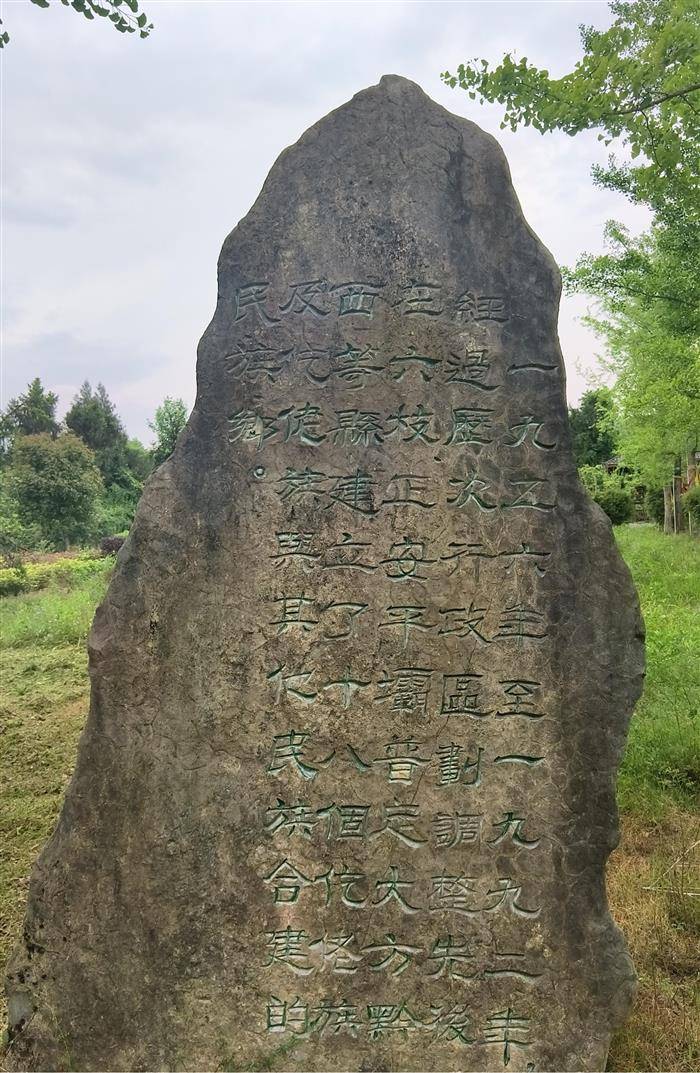 一九五六年至一九九二年，
經過歷次行政區劃調整先後
在六枝正安平壩普定大方黔
西等縣建立了十八個仡佬族
及仡佬族與其他民族合建的
民族鄉。